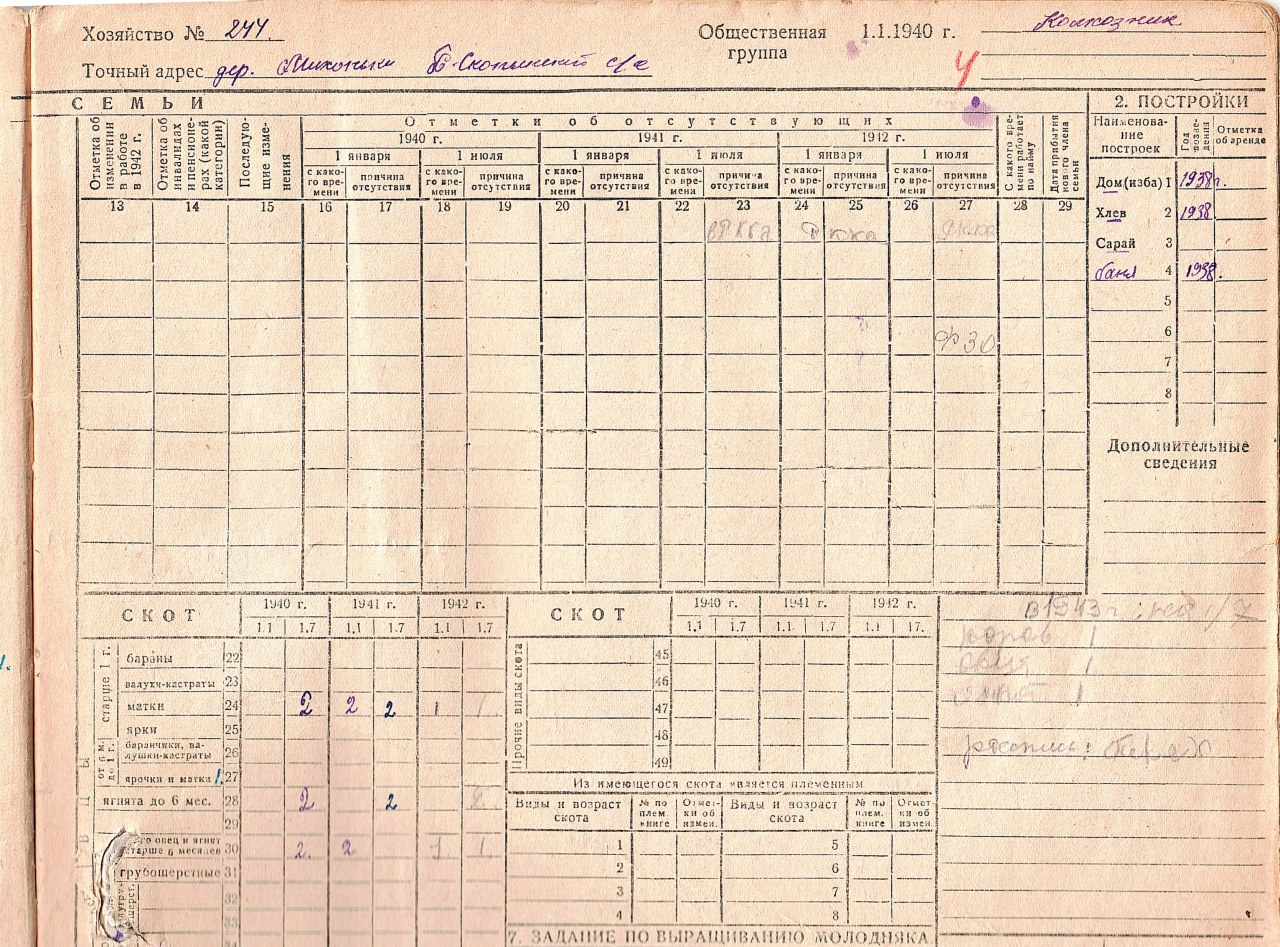 Хозяйство № 244.
Общественная группа
1.1.1940 г. Колхозник
Точный адрес дер. Б-Скопинский с/с
4
СЕМЬИ
Отметка об изменении в работе в 1942 г.
Отметка об инвалидах и пенсионерах (какой категории)
Последующие изменения
Отметки об отсутствующих
1940 г. 1941 г. 1912 г.
1 января 1 июля 1 января 1 июля 1 января 1 июля
с какого времени причина отсутствия с какого времени причина отсутствия с какого времени причина отсутствия с какого времени причина отсутствия с какого времени причина отсутствия с какого времени причина отсутствия
С какого времени работает по найму
Дата прибытия нового члена семьи
13 14 15 16 17 18 19 20 21 22 23 24 25 26 27 28 29
в РККА РККА РККА
ФЗО
2. ПОСТРОЙКИ
Наименование построек
Год возведения
Отметка об аренде
Дом (изба) 1 1938 г.
Хлев 2 1938
Сарай 3
баня 4 1938.
5
6
7
8
Дополнительные сведения
СКОТ
1940 г. 1941 г. 1942 г.
1.1 1.7 1.1 1.7 1.1 1.7
старше 1 г.
бараны 22
валухи-кастраты 23
матки 24 2 2 2 1 1
ярки 25
от 6 м. до 1 г.
баранчики, валушки-кастраты 26
ярочки и матки 27
ягнята до 6 мес. 28 2 2
29
овец и ягнят старше 6 месяцев 30 2. 2 1 1
грубошерстные 31
32
33
34
СКОТ
1940 г. 1941 г. 1942 г.
1.1 1.7 1.1 1.7 1.1 17.
Прочие виды скота
45
46
47
48
49
Из имеющегося скота является племенным
Виды и возраст скота
№ по плем. книге
Отметки об измен.
Виды и возраст скота
№ по плем. книге
Отметки об измен.
1 5
2 6
3 7
4 8
7. ЗАДАНИЕ ПО ВЫРАЩИВАНИЮ МОЛОДНЯКА.
в 1943 г. на 1/I
коров 1
овца 1
1
роспись: